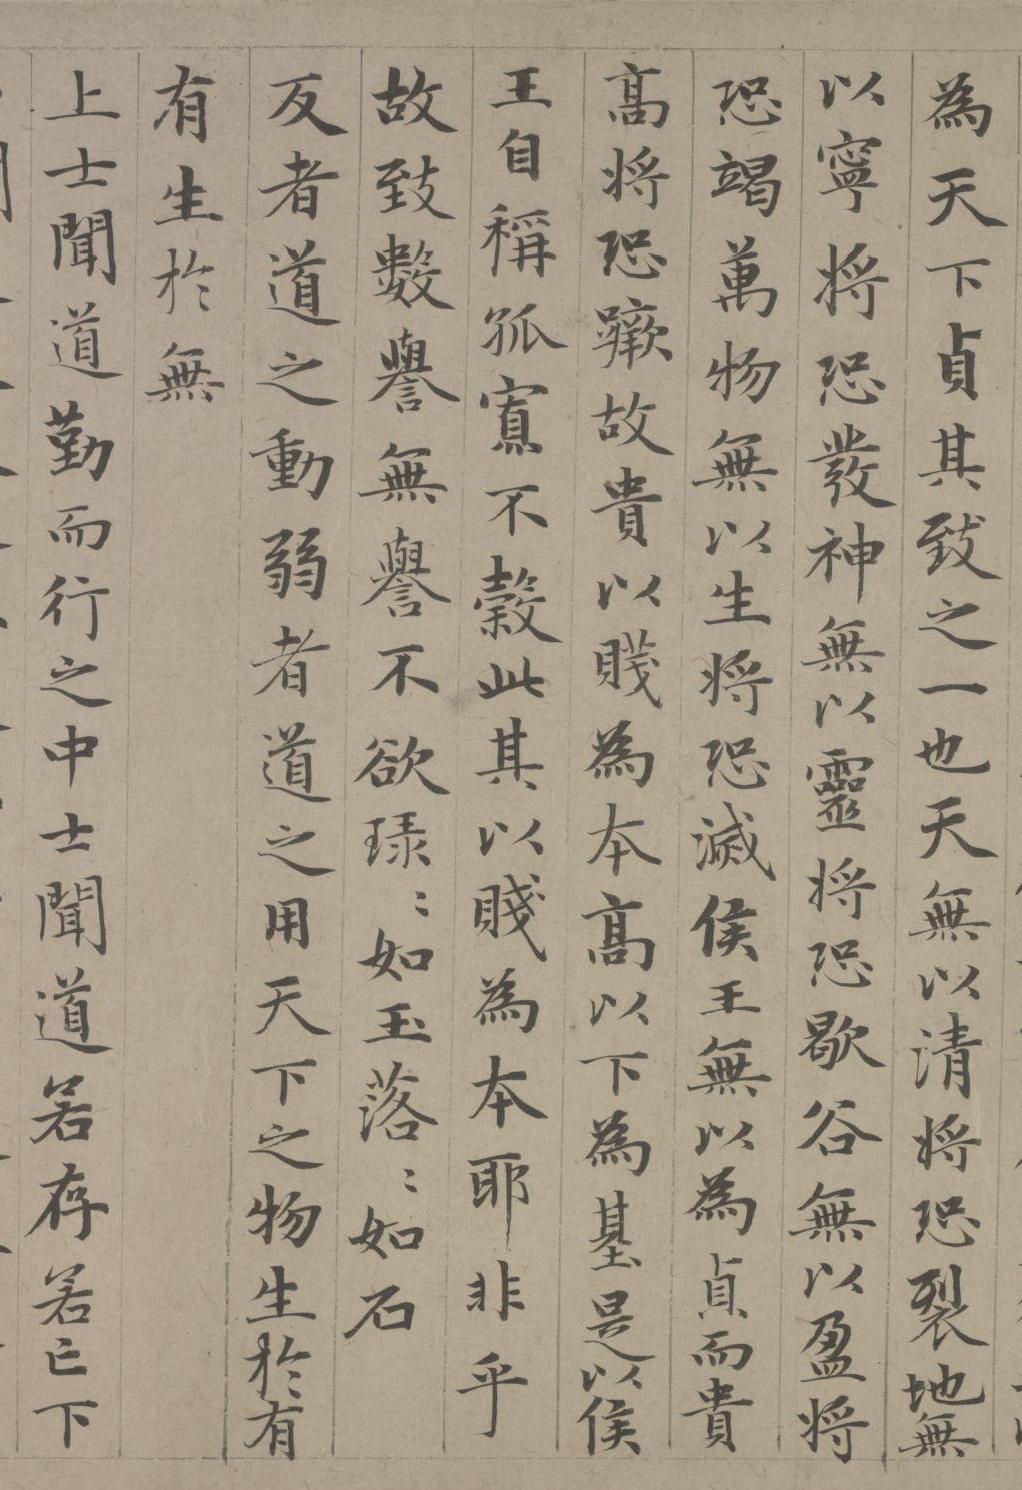 為天下貞其致之一也天無以清將恐裂地無
以寧將恐發神無以靈將恐歇谷無以盈將
恐竭萬物無以生將恐滅侯王無以為貞而貴
高將恐蹶故貴以賤為本高以下為基是以侯
王自稱孤寡不穀此其以賤為本耶非乎
故致數譽無譽不欲琭〻如玉落〻如石
反者道之動弱者道之用天下之物生於有
有生於無
上士聞道勤而行之中士聞道若存若亡下